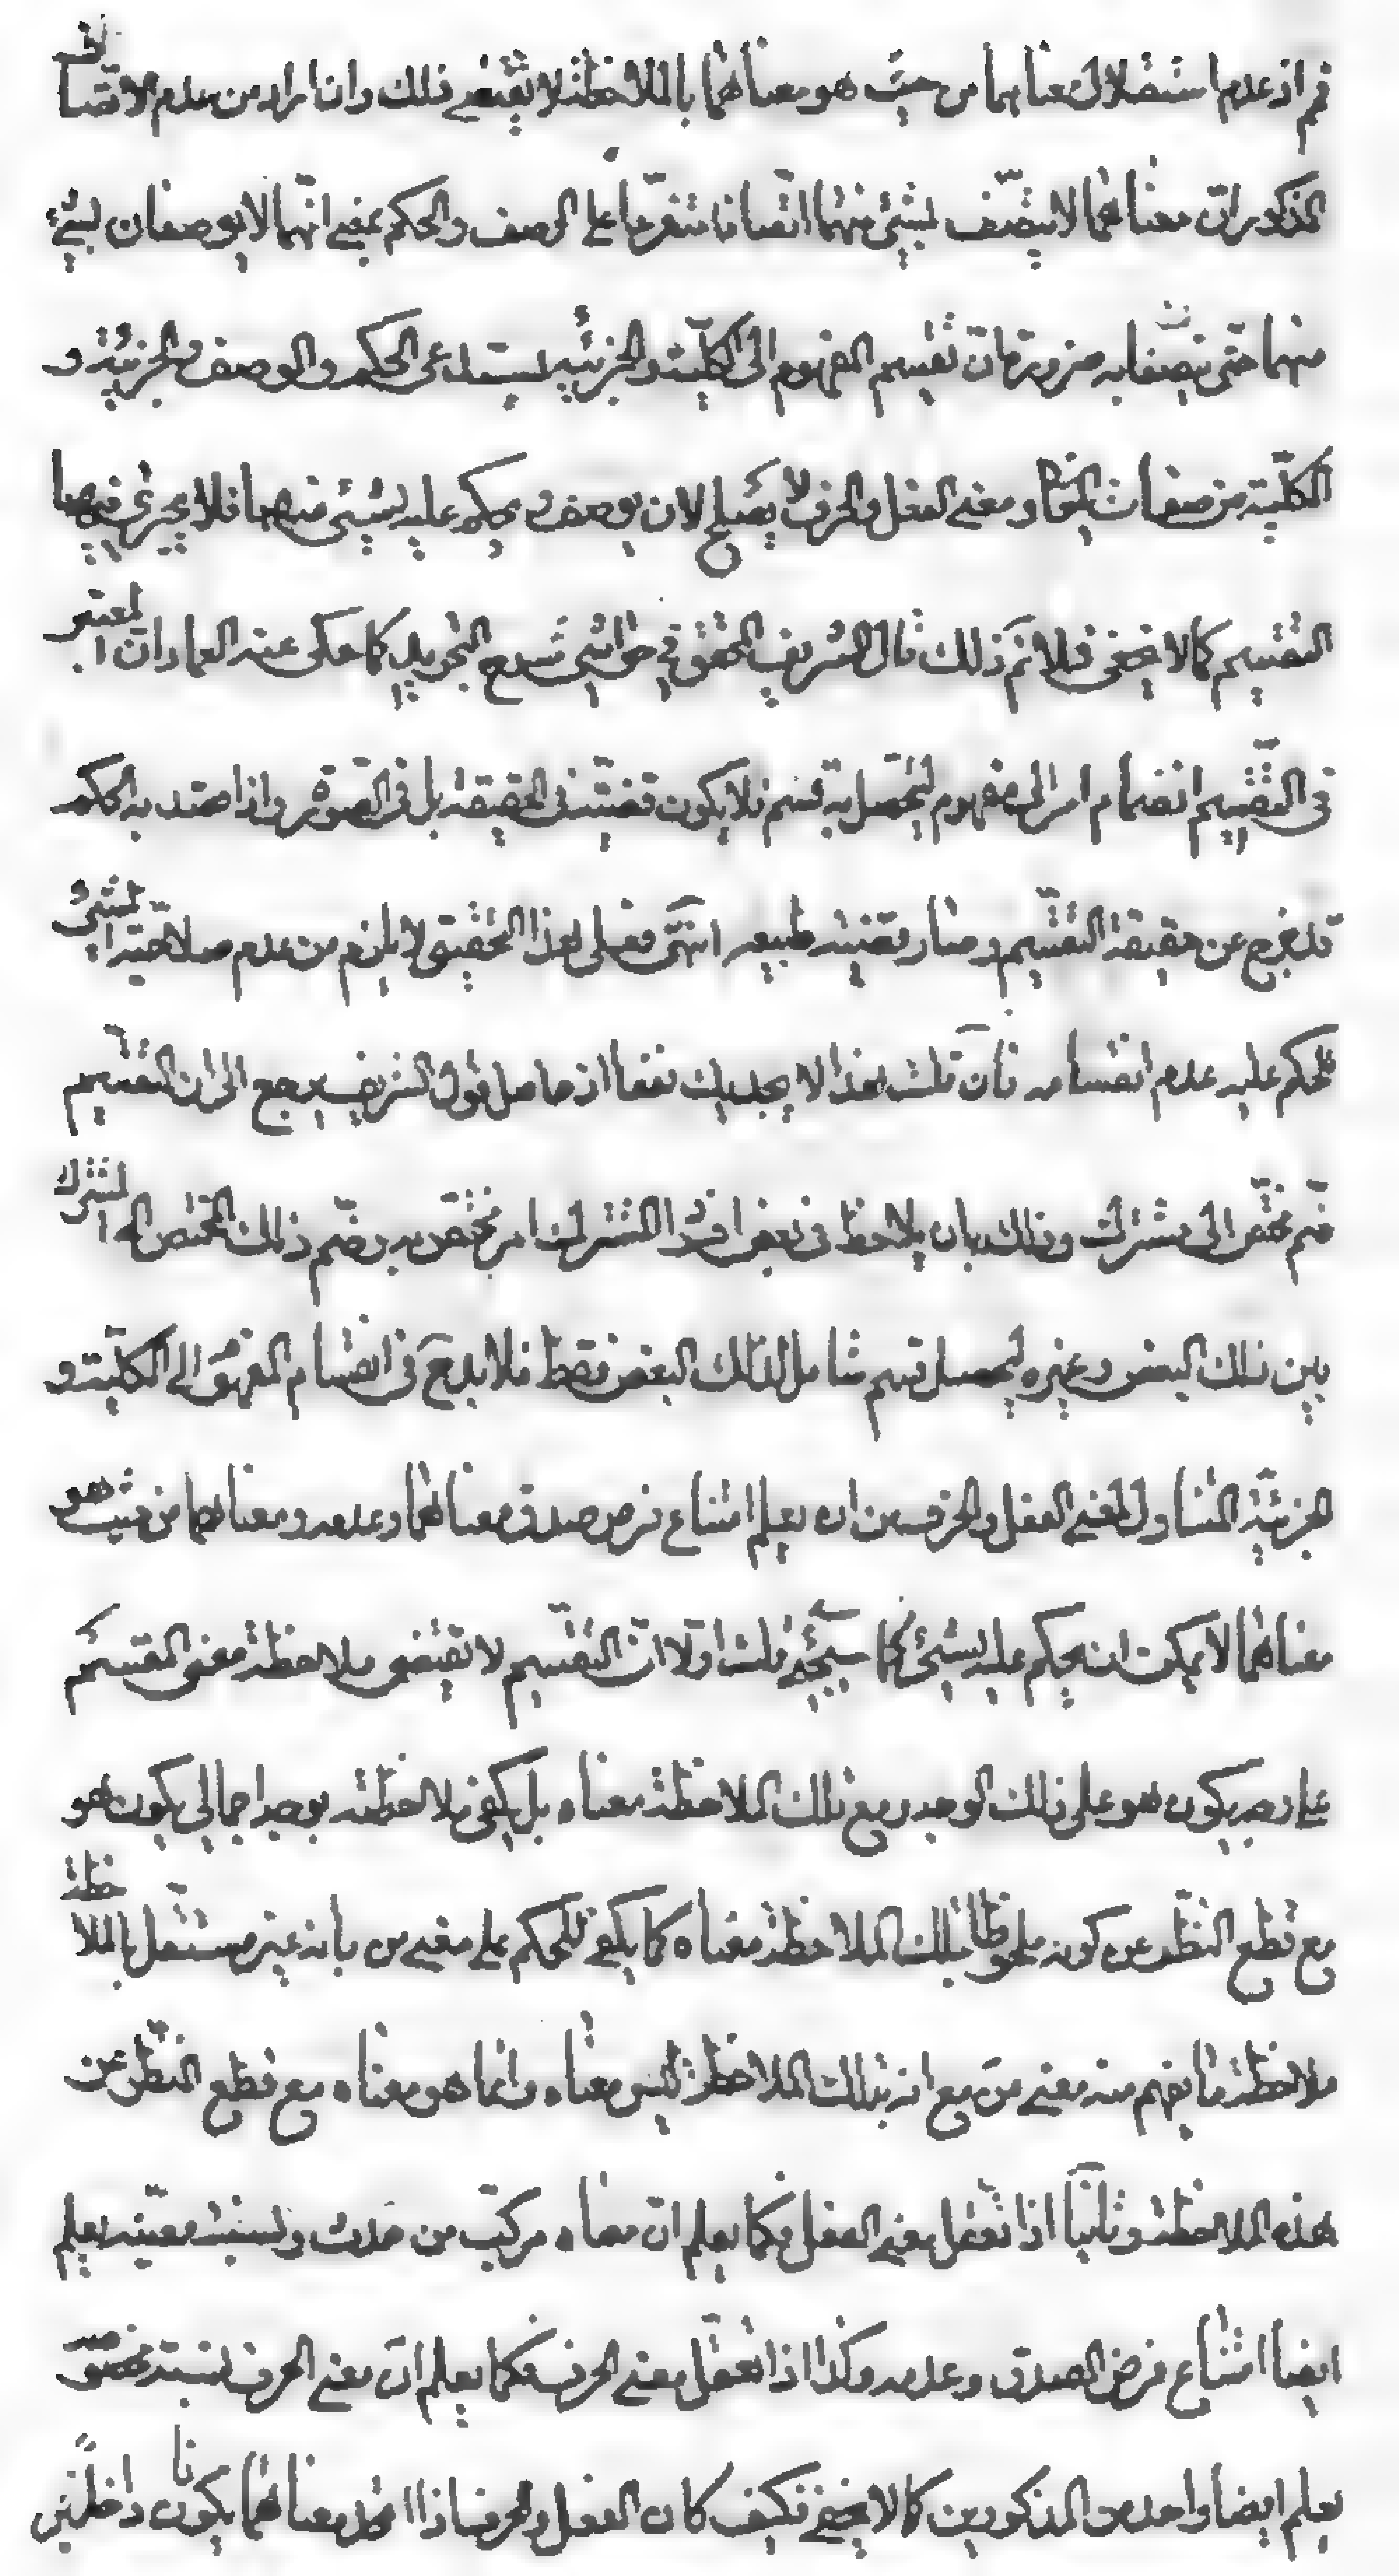 ثم ان عدم استقلال معناهما من حيث هو معناهما بالملاحظة لا يقتضي ذلك وان اراد من عدم الاتصاف
المذكور ان معناهما لا يتصف بشيئ منهما اتصافا متفرعا على الوصف والحكم بمعنى انهما لا يوصفان بشيئ
منهما حتى يتصفا به ضرورة ان تقسيم المفهوم الى الكلية والجزئية يستدعى الحكم والوصف والجزئية و
الكلية من صفات المحكوم ومعنى الفعل والحرف لا يصلح لان يوصف ويحكم عليه بشيئ منهما فلا يجرى فيهما
التقسيم كما لا يخفى فلانم ذلك قال الشريف المحقق في حواشى شرح التجريد كما حكى عنه العماد ان المعتبر
فى التقسيم انضمام امر الى مفهوم ليحصل به قسم فلا يكون قضية فى الحقيقة بل فى الصورة واذا قصد به الحكم
قد خرج عن حقيقة التقسيم وصار قضية طبيعية انتهى فعلى هذا التحقيق لا يلزم من عدم صلاحية الشيئ
للحكم عليه عدم انقسامه فان قلت هذا لا يجديك نفعا اذ حاصل قول الشريف يرجع الى ان التقسيم
ضم مختص الى مشترك وذلك بان يلاحظ فى بعض افراد المشترك امر مختص به وضم ذلك المختص الى المشترك
بين ذلك البعض وغيره ليحصل قسم شامل لذلك البعض فقط فلا بد ح فى انقسام المفهوم الى الكلية و
الجزئية المتناول لمعنى الفعل والحرف من ان يعلم امتناع فرض صدق معناهما وعدمه ومعناهما من حيث هو
معناهما لا يمكن ان يحكم عليه بشيئ كما سيجيئ قلت اولا ان التقسيم لا يقتضى ملاحظة معنى المقسم
على وجه يكون هو على ذلك الوجه ومع تلك الملاحظة معناه بل يكفى ملاحظته بوجه اجمالي يكون هو
مع قطع النظر عن كونه ملحوظا بتلك الملاحظة معناه كما يكفى للحكم على معنى من بانه غير مستقل بالملاحظة
ملاحظة ما يفهم منه معنى من مع انه بتلك الملاحظة ليس معناه وانما هو معناه مع قطع النظر عن
هذه الملاحظة وثانيا اذا تعقل معنى الفعل فكما يعلم ان معناه مركب من حدث ونسبة معينة يعلم
ايضا امتناع فرض الصدق وعدمه وكذا اذا تعقل معنى الحرف فكما يعلم ان معنى الحرف نسبة مخصوصة
يعلم ايضا واحد من المذكورين كما لا يخفى فكيف كان الفعل والحرف اذا اخذ معناهما يكونان داخلين